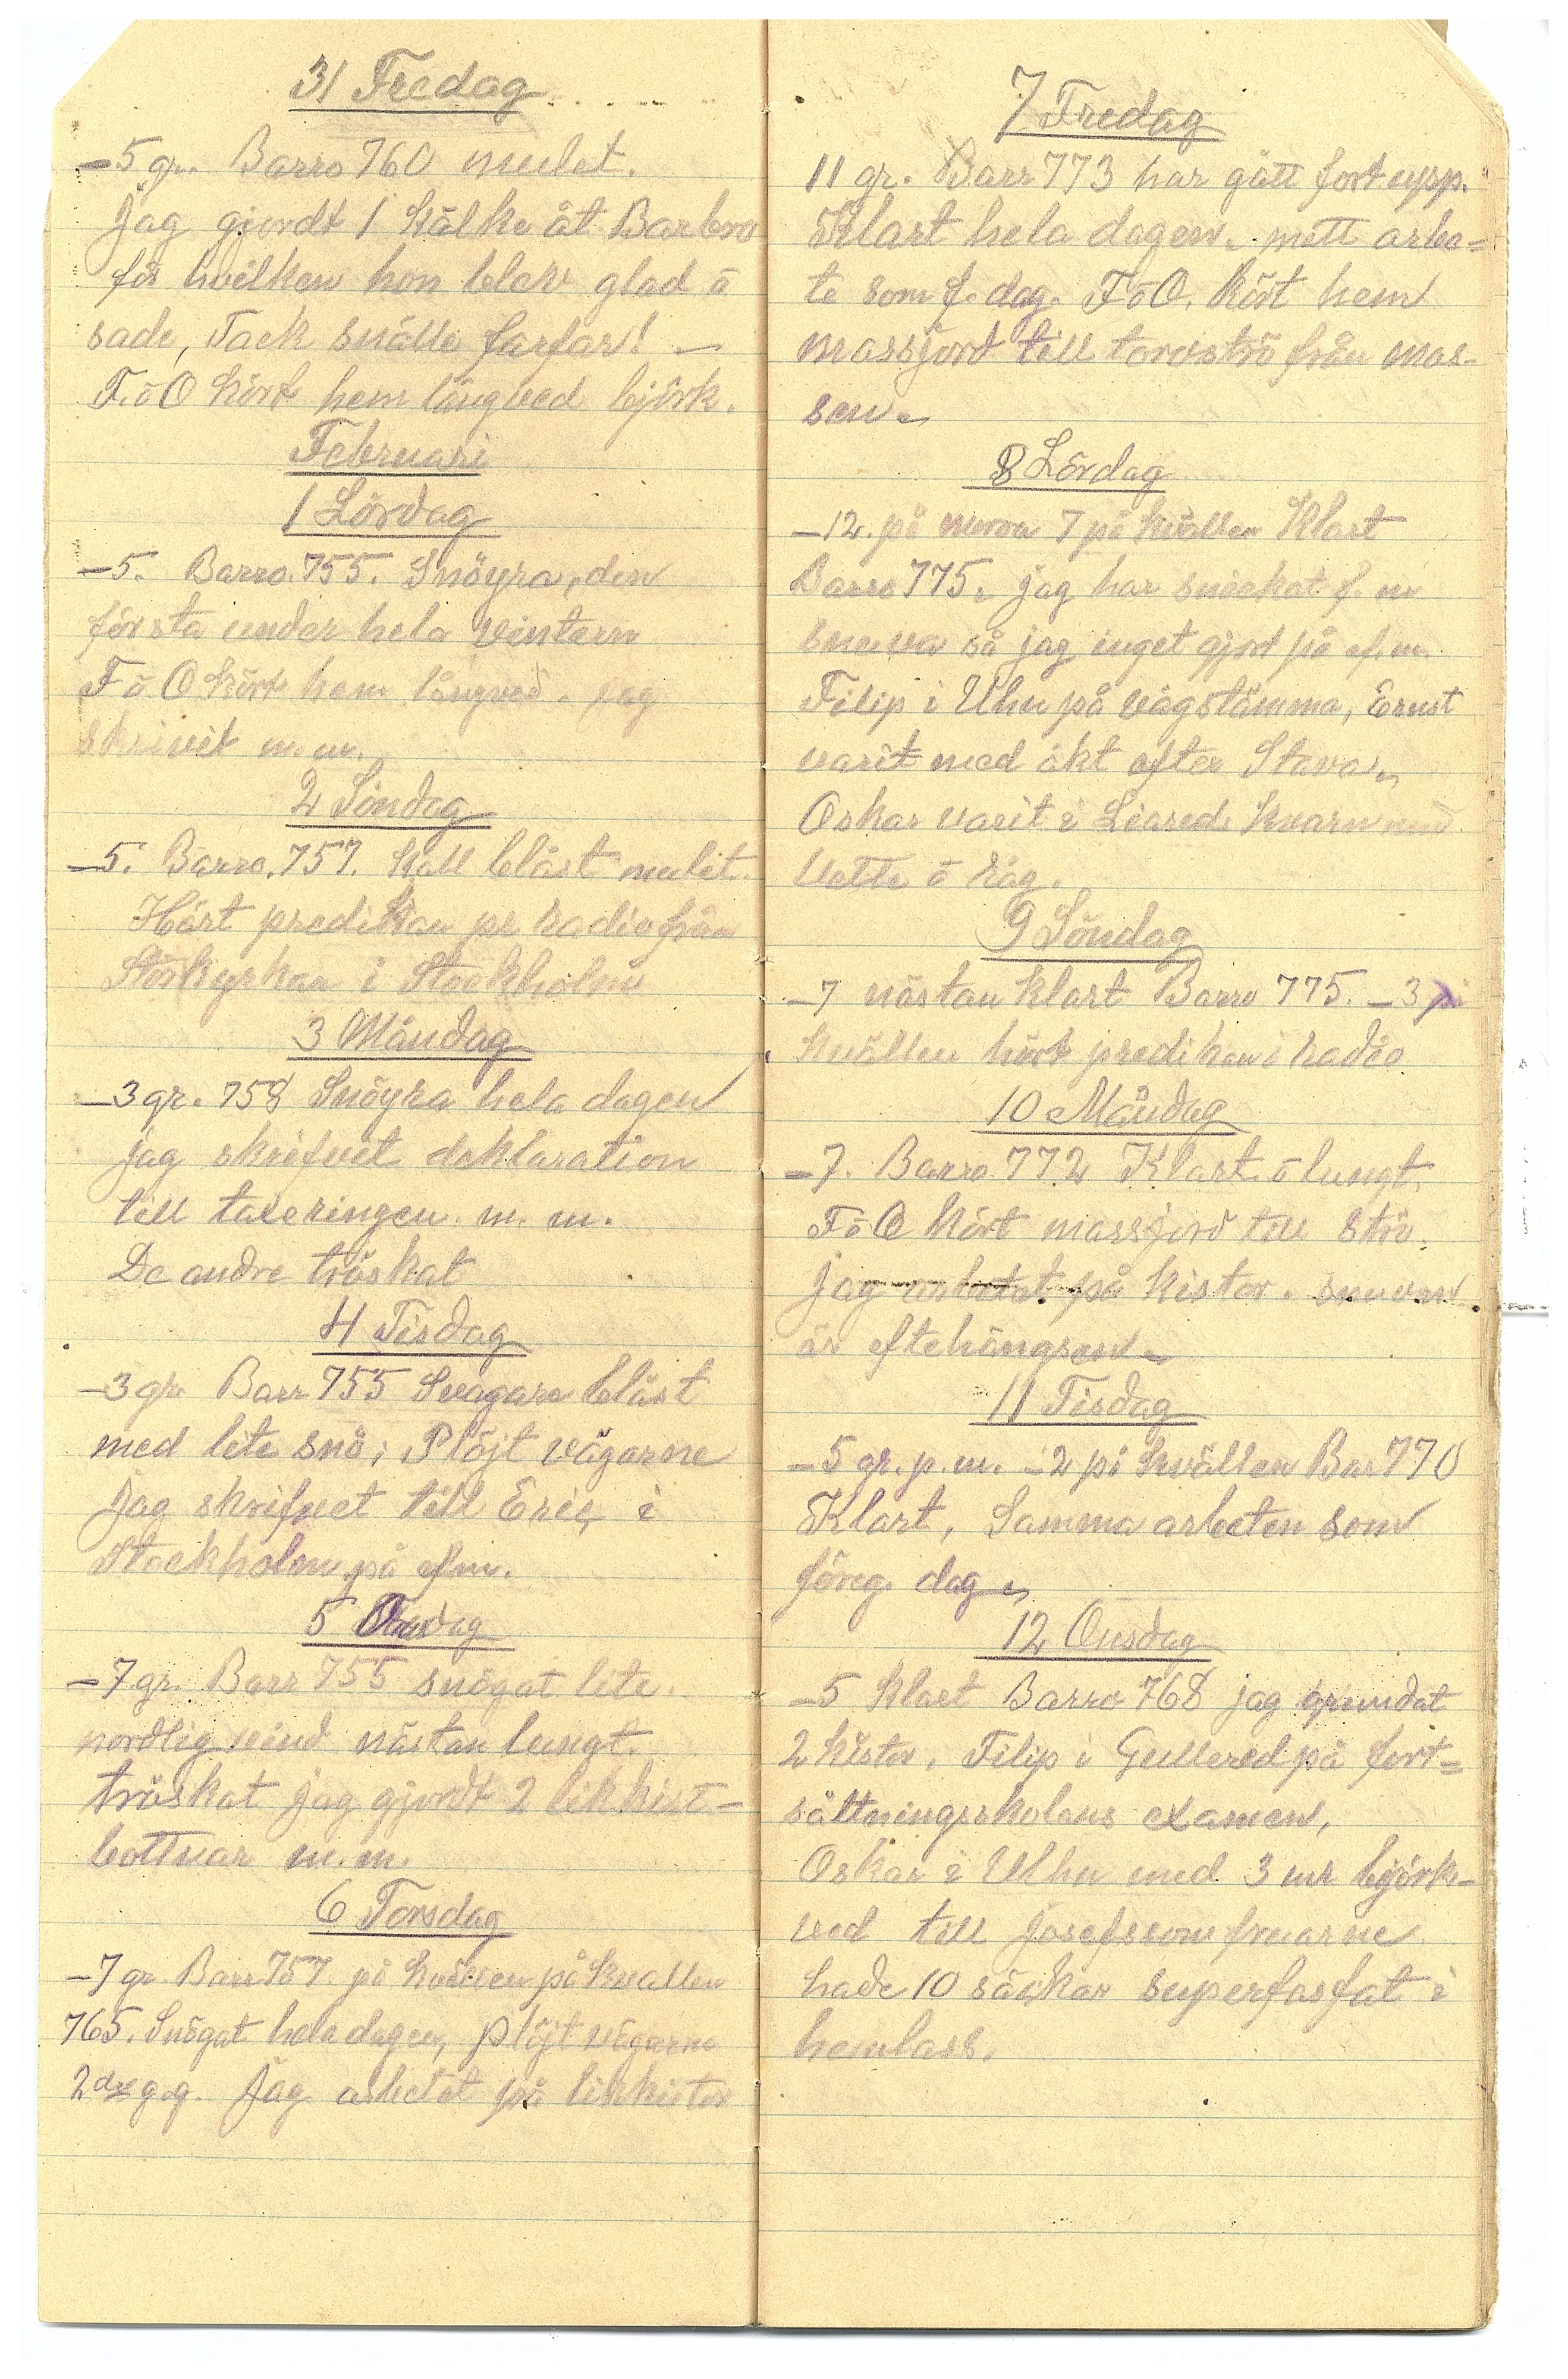 31 Fredag
-5 gr. Barro 760 mulet.
Jag gjordt 1 Kälke åt Barbro
för hvilken hon blev glad ö
sade, Tack snälle farfar! —
F. ö O kört hem långved björk.
Februari
1 Lördag
-5. Barro. 755. Snöyra, den
första under hela vintern
F ö O kört hem långved. jag
skrivit m. m.
2 Söndag
-5. Barro. 757. Kall blåst mulet.
Hört predikan pr radio från
Storkyrkan i Stockholm
3 Måndag
-3 gr. 758 Snöyra hela dagen
jag skrifvit deklaration
till taxeringen. m. m.
De andre tröskat
4 Tisdag
-3 gr. Barr 755 Svagare blåst
med lite snö; Plöjt vägarne
Jag skrifvet till Eric i
Stockholm på efm.
5 Onsdag
-7 gr. Barr 755 snögat lite.
nordlig vind nästan lungt.
tröskat jag gjordt 2 likkist-
bottnar m. m.
6 Torsdag
-7 gr Barr 757 på kvällen på kvallen
765. Snögat hela dagen, plöjt vägarne
2dre g.g. Jag arbetat på likkistor
7 Fredag
11 gr. Barr 773 har gått fort upp.
Klart hela dagen. mett arbe=
te som f. dag. F ö O. Kört hem
massjord till torvströ från mas-
sen.
8 Lördag
-12. på morron 7 på kvällen Klart
Barro 775. jag har snickat f. m
snuva så jag inget gjort på ef. m.
Filip i Uhn på vägstämma, Ernst
varit med åkt efter Stava.
Oskar varit i Liared. Kvarn med
Vette ö råg.
9 Söndag
-7 nästan klart Barro 775. -3 på
Kvällen hört predikan i radio
10 Måndag
-7. Barro. 772 Klart. ö lungt.
F ö O Kört massjord till Strö.
Jag arbetat på kistor. snuvan
är eftehängsen
11 Tisdag
-5 gr. p. m. -2 på kvällen Bar 770
Klart, Samma arbeten som
föreg. dag
12 Onsdag
-5 Klart Barro 768 jag grundat
2 kistor, Filip i Gullered på fort=
sättningsskolans examen,
Oskar i Ulhn med 3 mr björk-
ved till Josefssom fruarne
hade 10 säckar superfasfat i
hemlass.